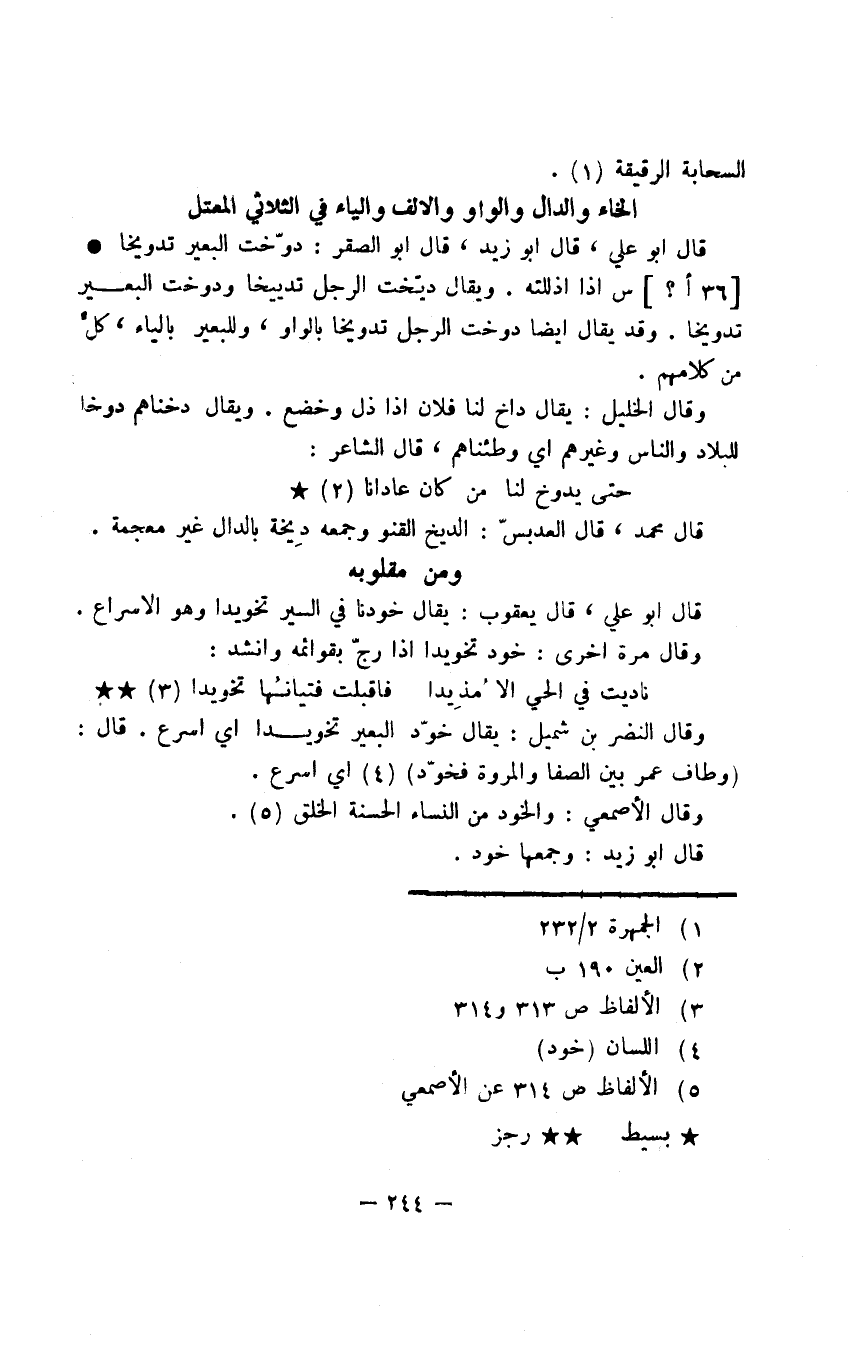 السحابة الرقيقة (١) .
الخاء والدال والواو والالف والياء في الثلاثي المعتل
قال ابو علي ، قال ابو زيد ، قال ابو الصقر : دوّخت البعير تدويخا ●
[٣٦ أ ؟ ] س اذا اذللته . ويقال ديّخت الرجل تدييخا ودوخت البعـــير
تدويخا . وقد يقال ايضا دوخت الرجل تدويخا بالواو ، وللبعير بالياء ، كلٌ
من كلامهم .
وقال الخليل : يقال داخ لنا فلان اذا ذل وخضع . ويقال دخناهم دوخا
للبلاد والناس وغيرهم اي وطئناهم ، قال الشاعر :
حتى يدوخ لنا من كان عادانا (٢) ★
قال محمد ، قال العدبسّ : الديخ القنو وجمعه دِيخة بالدال غير معجمة .
ومن مقلوبه
قال ابو علي ، قال يعقوب : يقال خودنا في السير تخويدا وهو الاسراع .
وقال مرة اخرى : خود تخويدا اذا رجّ بقوائمه وانشد :
ناديت في الحي الا مُذِيدا فاقبلت فتيانُها تخويدا (٣) ★★
وقال النضر بن شميل : يقال خوّد البعير تخويـــدا اي اسرع . قال :
(وطاف عمر بين الصفا والمروة فخوّد) (٤) اي اسرع .
وقال الأصمعي : والخود من النساء الحسنة الخلق (٥) .
قال ابو زيد : وجمعها خود .
١) الجمهرة ٢٣٢/٢
٢) العين ١٩٠ ب
٣) الألفاظ ص ٣١٣ و٣١٤
٤) اللسان (خود)
٥) الألفاظ ص ٣١٤ عن الأصمعي
★ بسيط ★★ رجز
— ٢٤٤ —